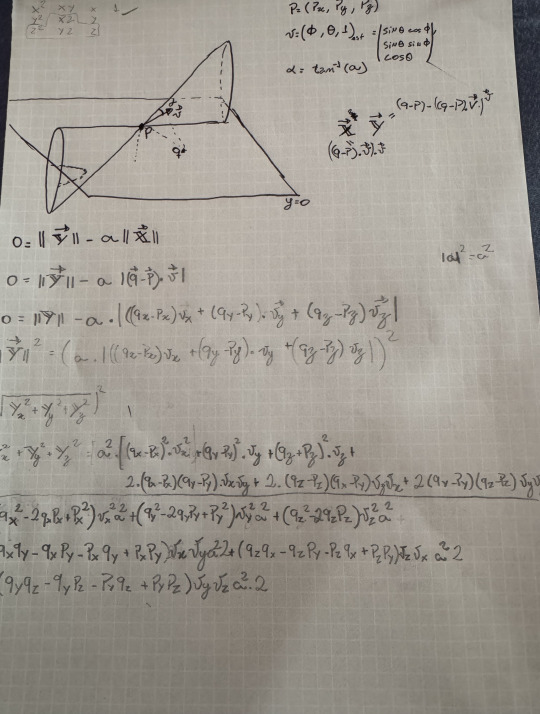 x² xy x 1
y² xz y
z² yz z
P = (Px, Py, Pz)
v = (Φ, θ, 1)est = (sinθ cosΦ, sinθ sinΦ, cosθ)
α = tan⁻¹(a)
X Y = (q-p) - ((q-p)·v)·v
((q-p)·v)·v
α
v
P
q
y=0
0 = ||Y|| - a ||X||
|a|² = a²
0 = ||Y|| - a |(q-p)·v|
0 = ||Y|| - a·|((qx-Px)vx + (qy-Py)·vy + (qz-Pz)vz|
Y||² = (a·|((qx-Px)vx + (qy-Py)·vy + (qz-Pz)vz|)²
√(Yx² + Yy² + Yz²)²
² + Yy² + Yz² = a²·[(qx-Px)²·vx² + (qy-Py)²·vy + (qz+Pz)²·vz +
2·(qx-Px)(qy-Py)·vxvy + 2·(qz-Pz)(qx-Px)·vzvx + 2(qy-Py)(qz-Pz)vyv
qx² - 2qxPx + Px²)vx²a² + (qy² - 2qyPy + Py²)vy²a² + (qz² - 2qzPz)vz²a²
qxqy - qxPy - Pxqy + PxPy)vxvya²2 + (qzqx - qzPy - Pzqx + PzPy)vzvx a²2
(qyqz - qyPz - Pyqz + PyPz)vyvza²·2